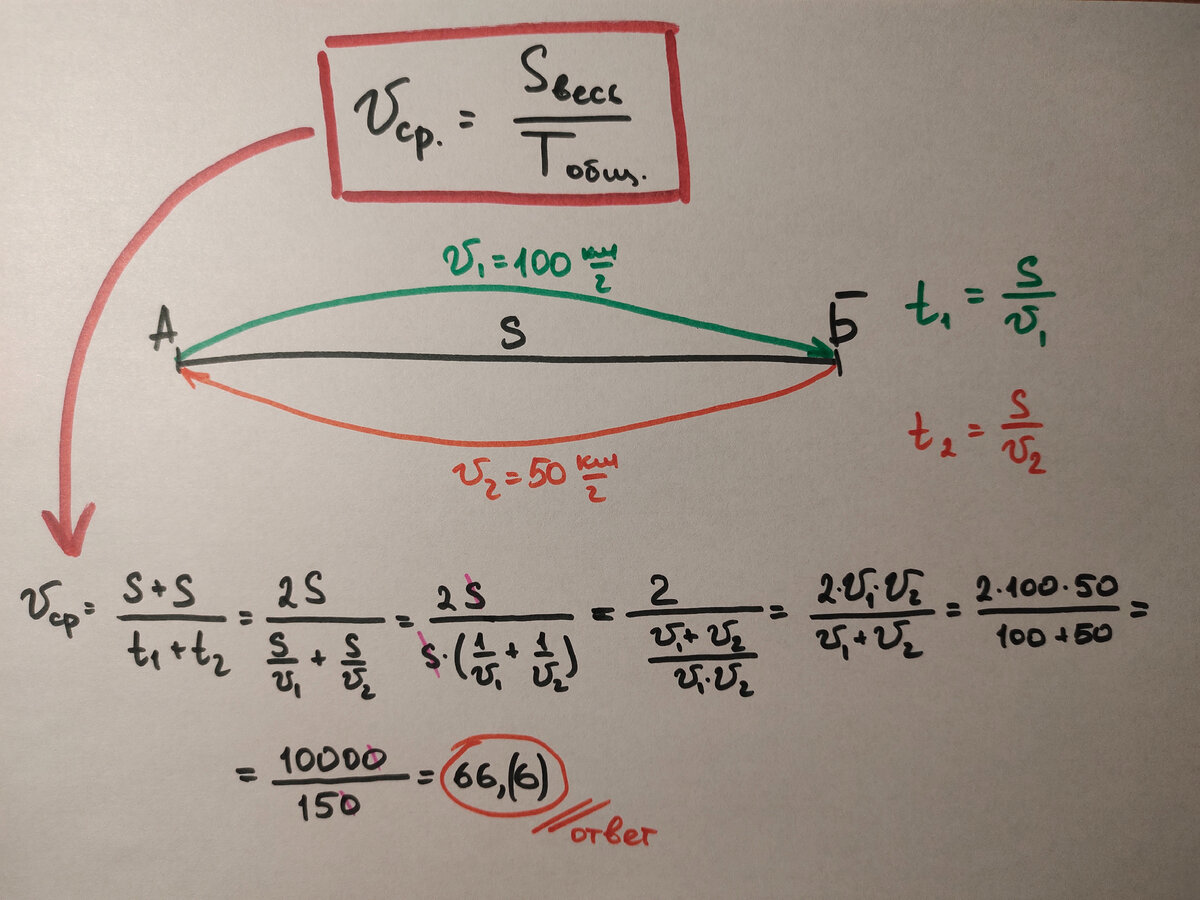 v ср. = S весь / T общ.
v₁ = 100 км/г
A S Б
t₁ = S/v₁
v₂ = 50 км/г
t₂ = S/v₂
v ср = (S + S)/(t₁ + t₂) = 2S/(S/v₁ + S/v₂) = 2S/(S·(1/v₁ + 1/v₂)) = 2/((v₁ + v₂)/(v₁·v₂)) = 2·v₁·v₂/(v₁ + v₂) = 2·100·50/(100 + 50) =
= 10000/150 = 66,(6)
ответ